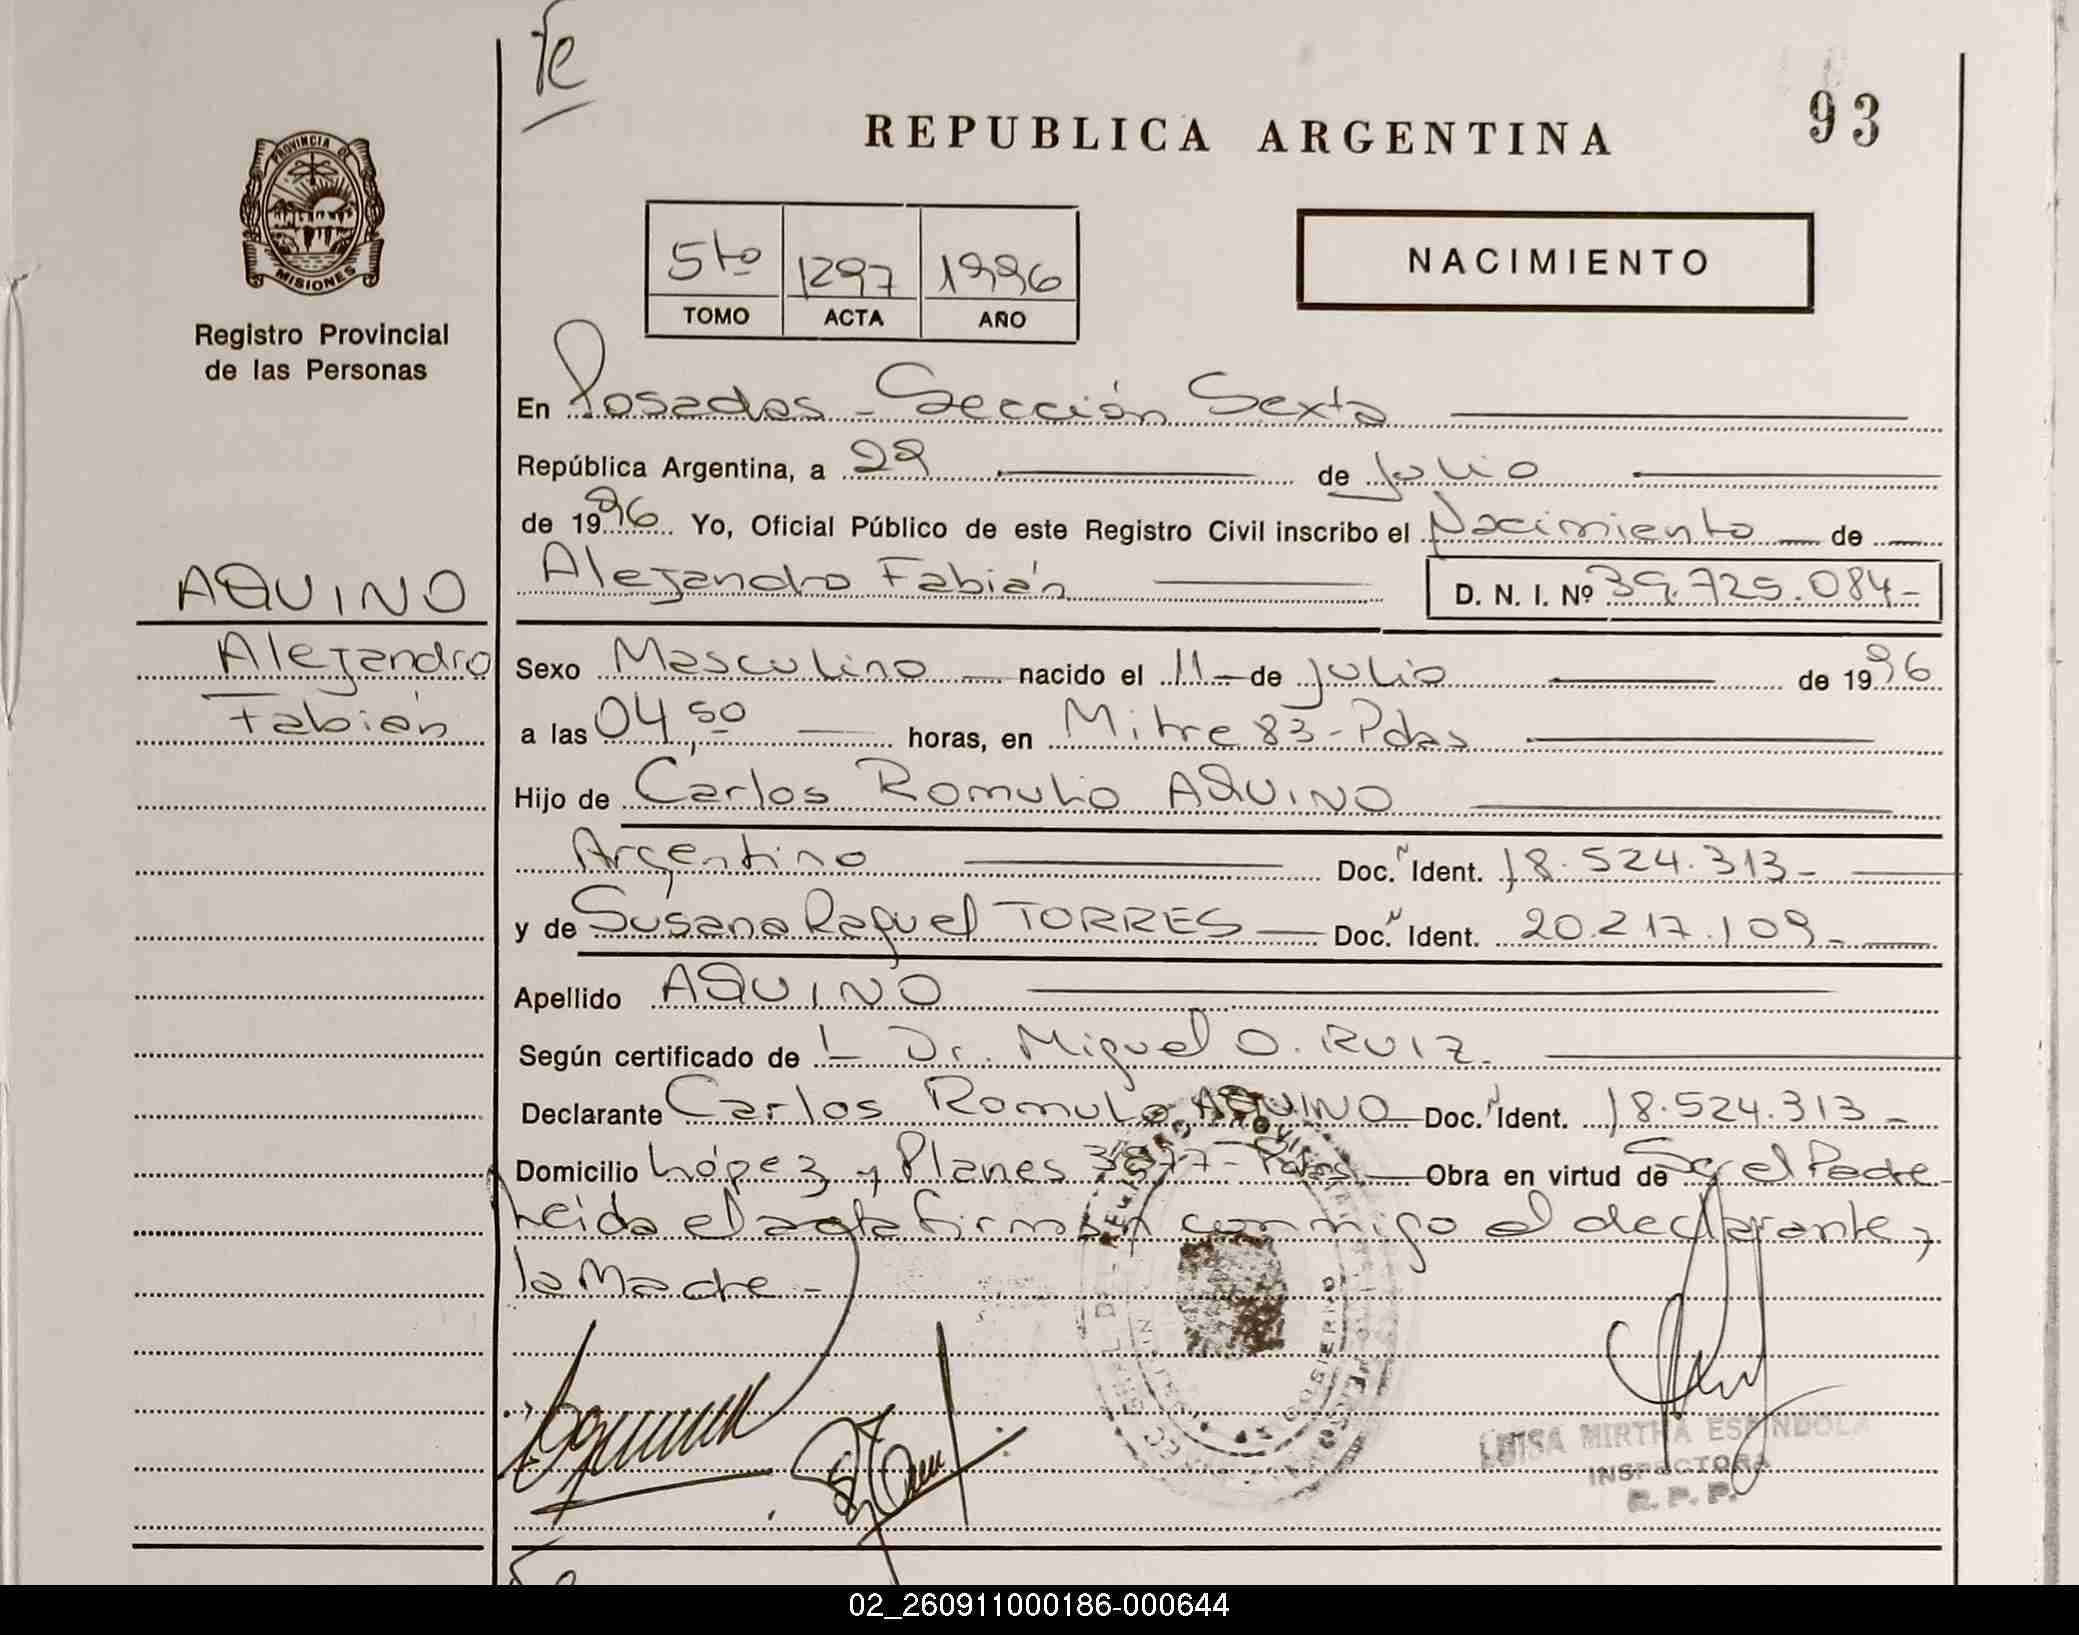 Te
REPUBLICA ARGENTINA
93
PROVINCIA DE
MISIONES
Registro Provincial
de las Personas
5to 1297 1996
TOMO ACTA AÑO
NACIMIENTO
En Posadas - Sección Sexta
República Argentina, a 29 de Julio
de 1996 Yo, Oficial Público de este Registro Civil inscribo el Nacimiento de
Alejandro Fabián D. N. I. Nº 39.725.084-
AQUINO
Alejandro
Fabián
Sexo Masculino nacido el 11 de julio de 1996
a las 04,50 horas, en Mitre 83 - Pdas
Hijo de Carlos Romulo AQUINO
Argentino Doc. Ident. 18.524.313-
y de Susana Raquel TORRES Doc. Ident. 20.217.109-
Apellido AQUINO
Según certificado de L Dr. Miguel O. RUIZ.
Declarante Carlos Romulo AQUINO Doc. Ident. 18.524.313-
Domicilio López y Planes - Pdas Obra en virtud de Ser el Padre
Leida el acta firman conmigo el declarante y
la Madre -
LUISA MIRTHA ESPINDOLA
INSPECTORA
R. P. P.
02_260911000186-000644